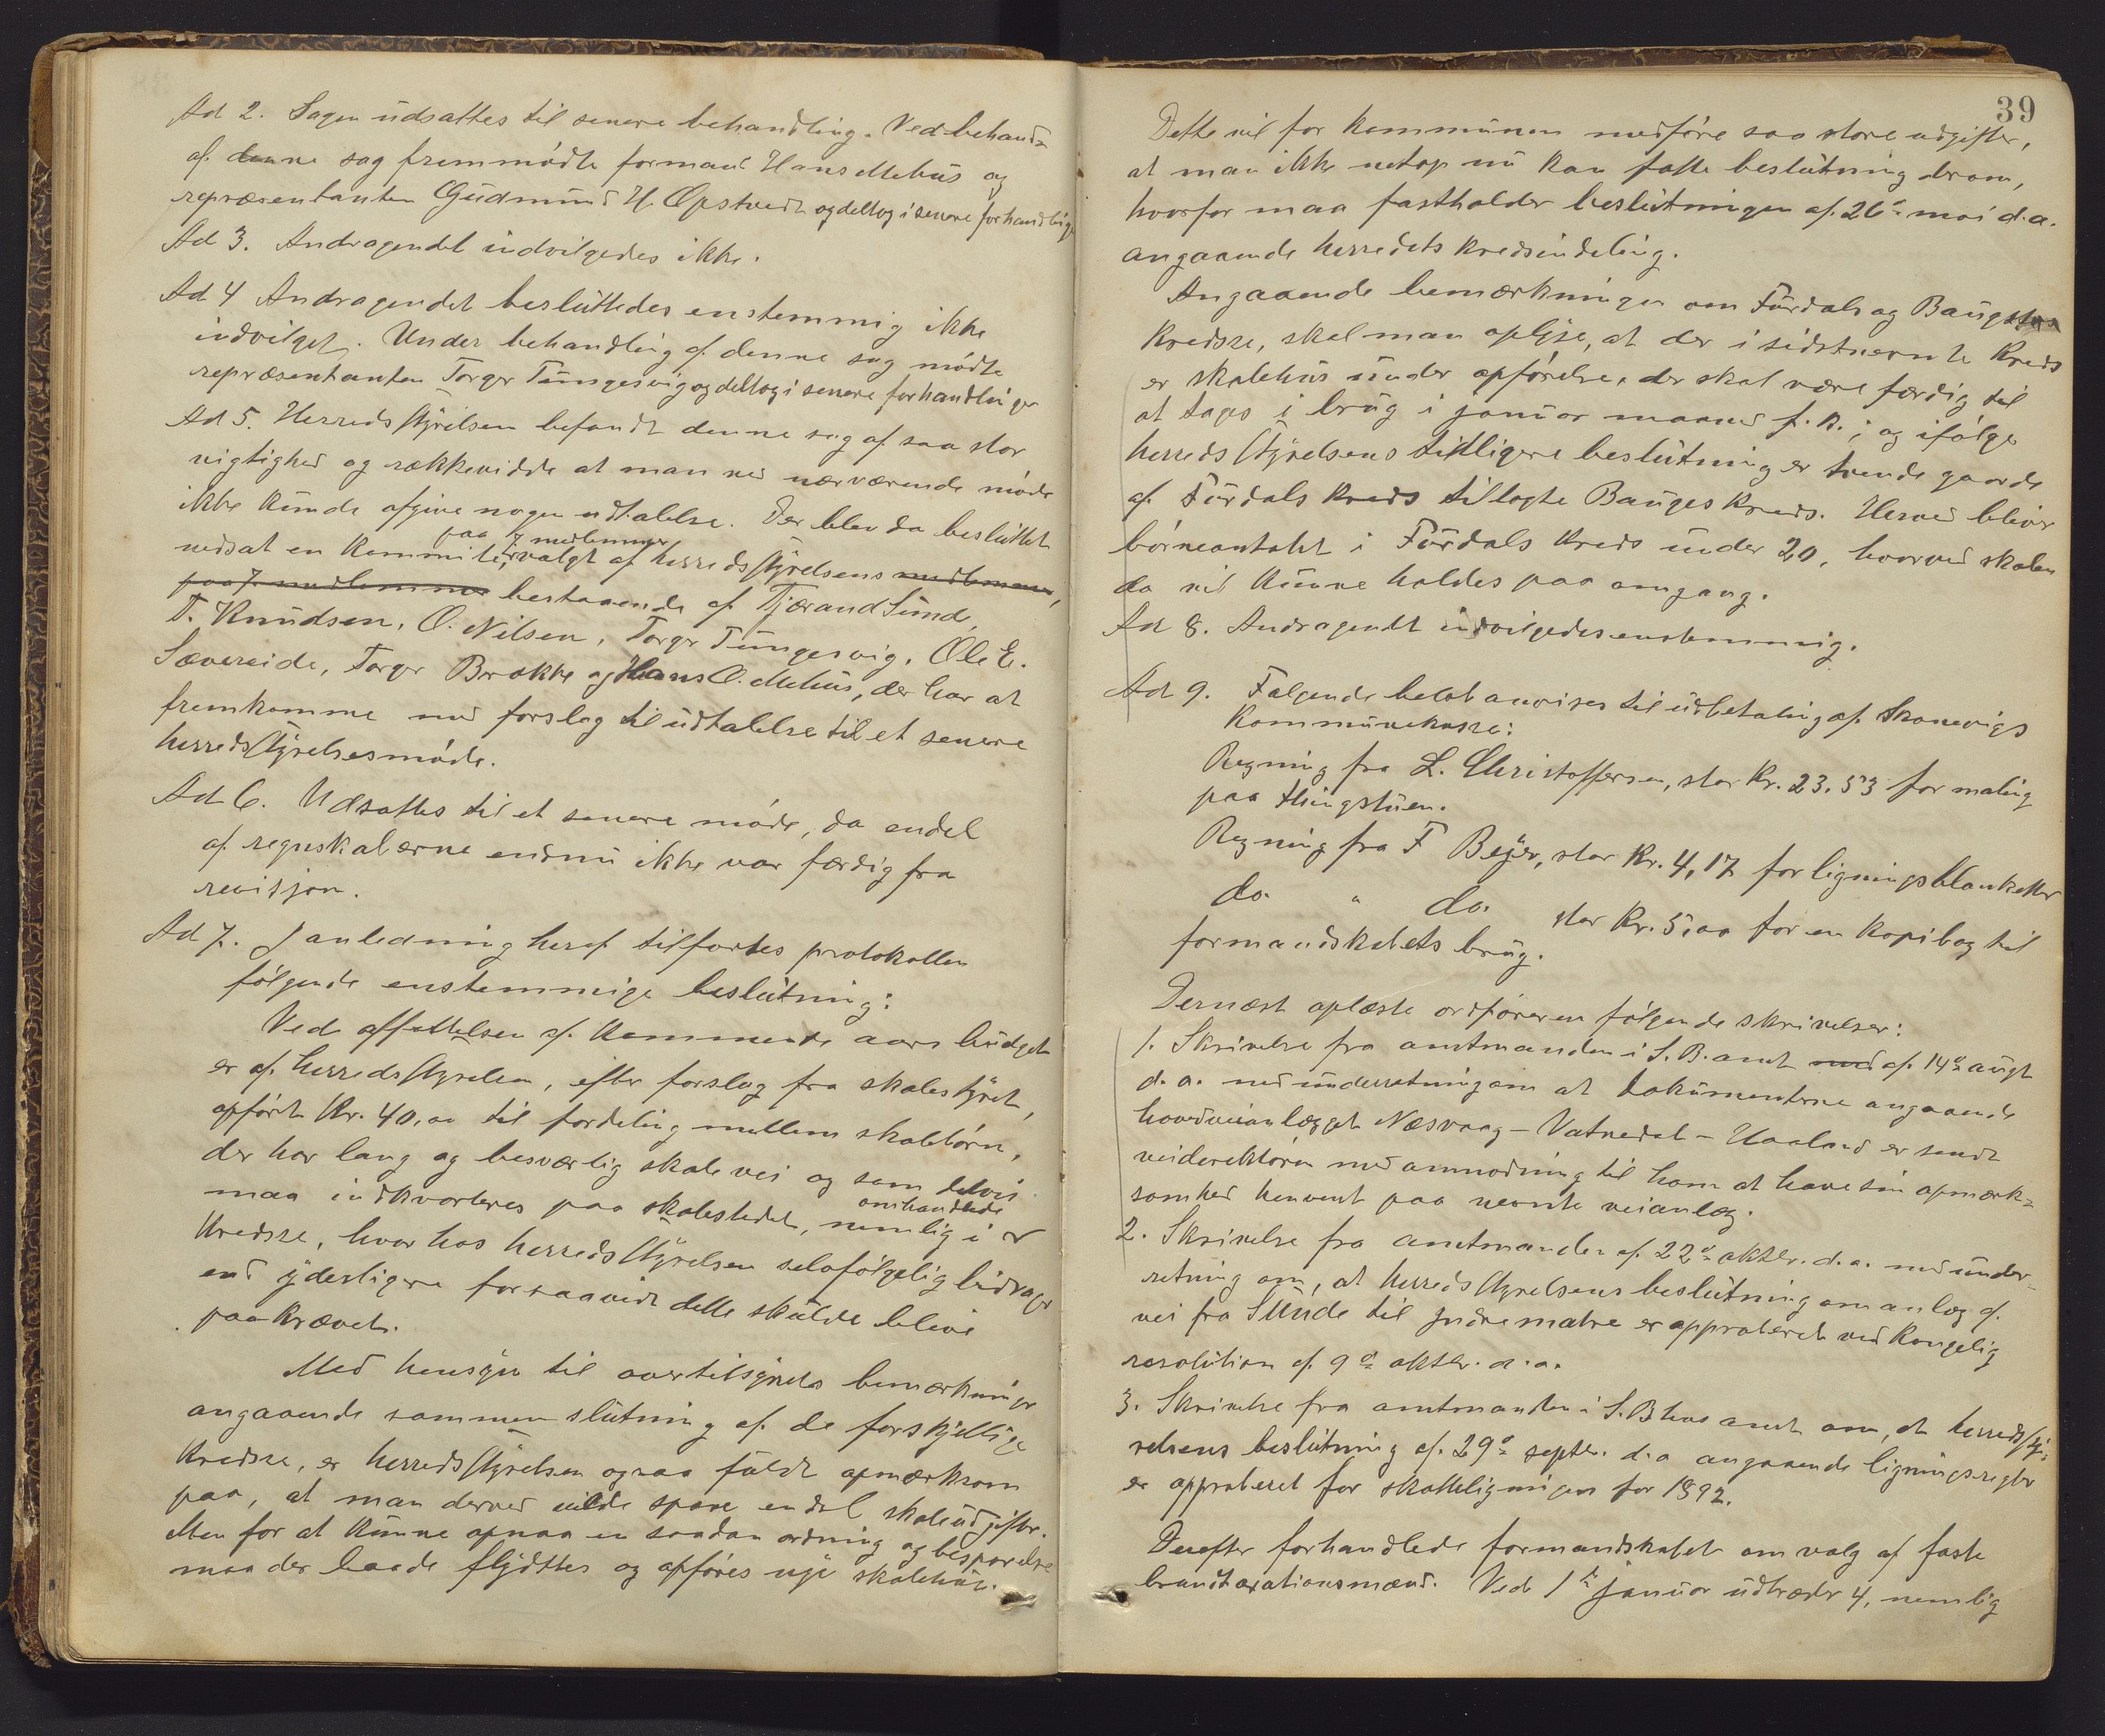 Ad 2. Sagen udsattes til senere behandling. Ved behand=
af denne sag fremmødte formand Hans Mehus og
repræsentanten Gudmund H. Opstvedt og deltog i senere forhandlinger
Ad 3. Andragendet indvilgedes ikke.
Ad 4 Andragendet besluttedes enstemmig ikke
indvilget. Under behandling af denne sag mødte
repræsentanten Torger Tungesvig og deltog i senere forhandlinger
Ad 5. Herredsstyrelsen befandt denne sag af saa stor
vigtighed og rækkevidde at man ved nærværende møde
ikke kunde afgive nogen udtalelse. Der blev da besluttet
paa 7 medlemmer
nedsat en kommite, valgt af herredsstyrelsens medlemmer,
paa 7 medlemmer bestaaende af Tjerand Sunde,
T. Knudsen, O. Nilsen, Torger Tungesvig, Ole E.
Sævereide, Torger Brokke og Hans O. Mehus, der har at
fremkomme med forslag til udtalelse til et senere
herredsstyrelsesmøde.
Ad 6. Udsattes til et senere møde, da endel
af regnskaberne endnu ikke var færdig fra
revisjon.
Ad 7. I anledning heraf tilførtes protokollen
følgende enstemmige beslutning:
Ved affattelsen af kommende aars budget
er af herredsstyrelsen, efter forslag fra skolestyret,
opført Kr. 40,00 til fordeling mellem skolebørn,
der har lang og besværlig skolevei og som delvis
maa indkvarteres paa skolestedet, nemlig i
omhandlede
kredse, hvorhos herredsstyrelsen selvfølgelig bidrager
end yderligere forsaavidt dette skulde blive
paakrævet.
Med hensyn til overtilsynets bemærkninger
angaaende sammenslutning af de forskjellige
kredse, er herredsstyrelsen ogsaa fuldt opmærksom
paa, at man derved vilde spare endel skoleudgifter.
Men for at kunne opnaa en saadan ordning og besparelse
maa der baade flydttes og opføres nye skolehuse.
39
Dette vil for kommunen medføre saa store udgifter,
at man ikke netop nu kan fatte beslutning derom,
hvorfor maa fastholder beslutningen af 26de mai d.a.
angaaende herredets kredsindeling.
Angaaende bemærkningen om Fürdals og Bauges
kredse, skal man oplyse, at der i sidstnevnte kreds
er skolehus under opførelse, der skal være færdig til
at tages i brug i januar maaned f. a.; og ifølge
herredsstyrelsens tidligere beslutning er tvende gaarde
af Fürdals kreds tillagte Bauges kreds. Herved bliver
børneantalet i Fürdals kreds under 20, hvorved skolen
da vil kunne holdes paa omgang.
Ad 8. Andragendet indvilgedes enstemmig.
Ad 9. Følgende beløb anvises til udbetaling af Skonevigs
kommunekasse:
Regning fra L. Christoffersen, stor Kr. 23,53 for maling
paa thingstuen.
Regning fra F Beyer, stor Kr. 4,17 for ligningsblanketter
do " do stor Kr. 5,00 for en kopibog til
formandskabets brug.
Dernæst oplæste ordføreren følgende skrivelser:
1. Skrivelse fra amtmanden i S.B. amt med af 14de augt
d.a. med underretning om at dokumenterne angaaende
hovedveianlægget Næsvaag - Vatnedal - Haaland er sendt
veidirektøren med anmodning til ham at have sin opmærk=
somhed henvent paa nevnte veianlæg.
2. Skrivelse fra amtmanden af 22de oktbr. d.a. med under=
retning om, at herredsstyrelsens beslutning om anlæg af
vei fra Sunde til Indre matre er approberet ved kongelig
resolution af 9de oktbr. d.a.
3. Skrivelse fra amtmanden i S. Bhus amt om, at herredssty=
relsens beslutning af 29de septbr. d.a angaaende ligningsregler
er approberet for skatteligningen for 1892.
Derefter forhandlede formandskabet om valg af faste
brandtaxationsmænd. Ved 1ste januar udtræder 4, nemlig